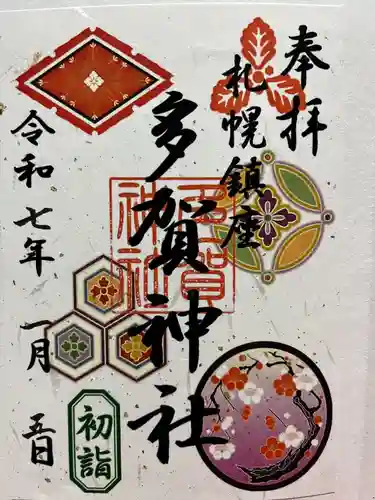 奉拝
札幌鎮座
多賀神社
多賀神社
令和七年 一月 五日
初詣